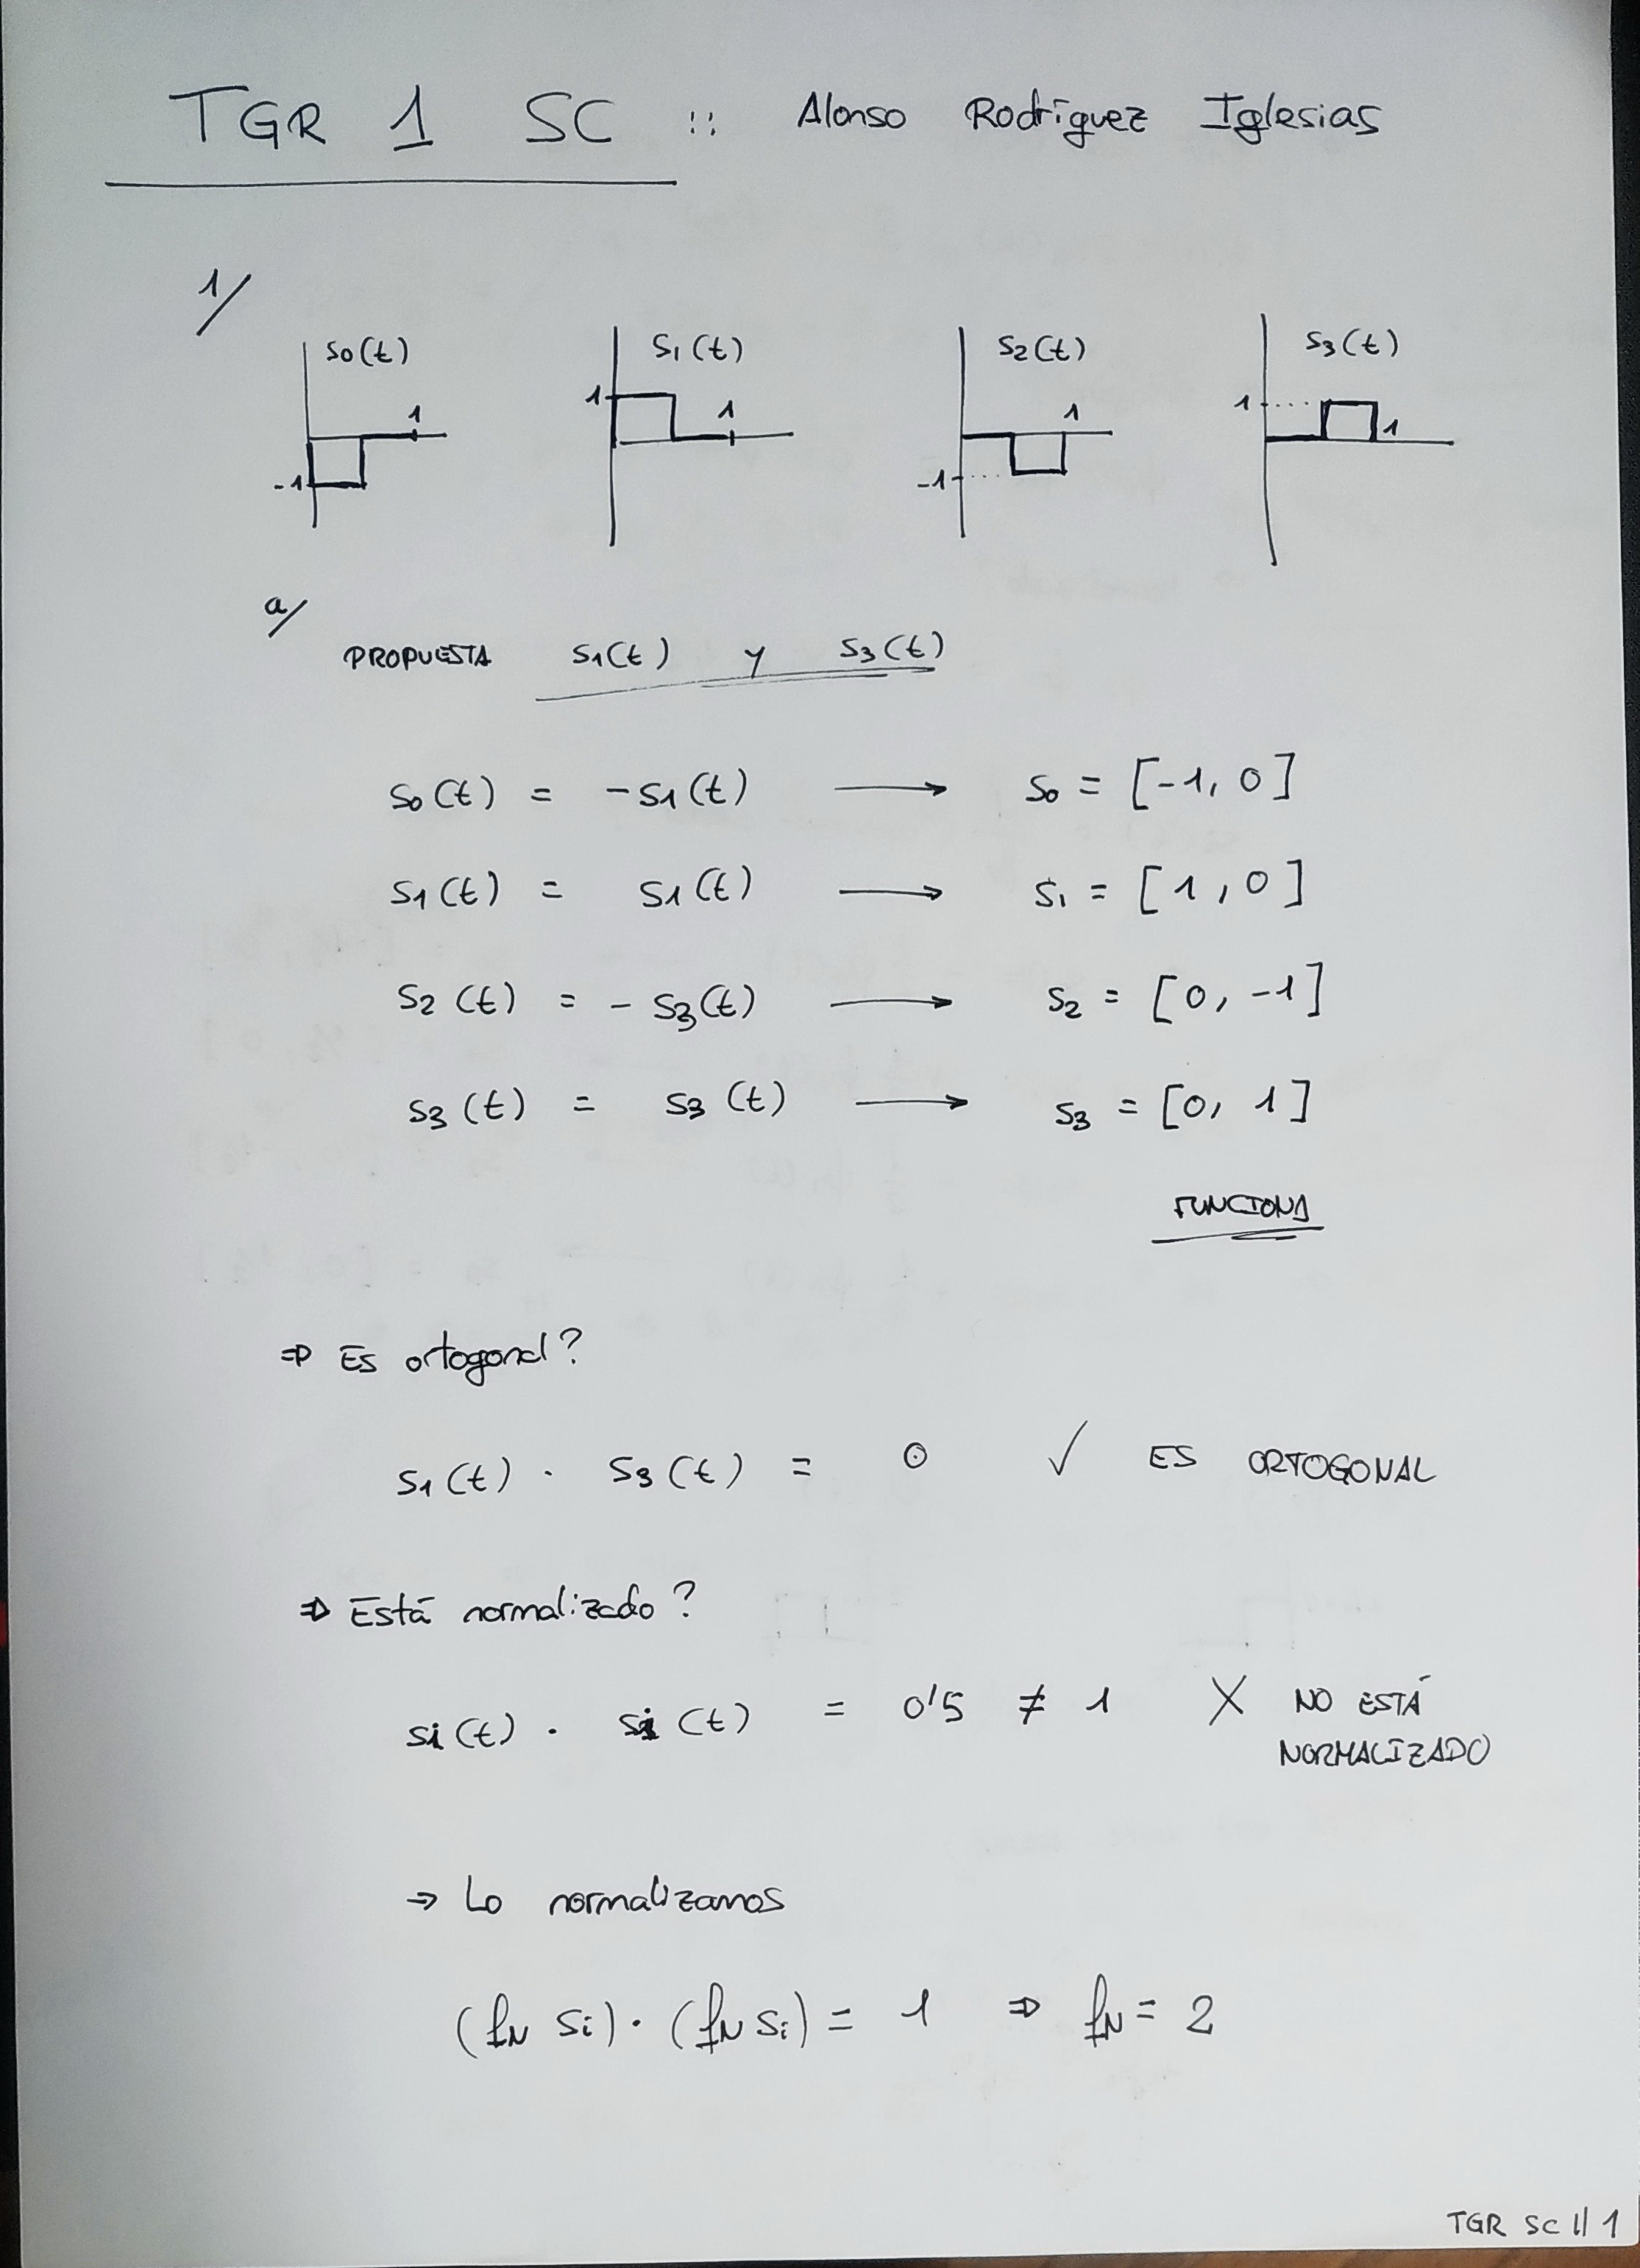 TGR 1 SC :: Alonso Rodríguez Iglesias
1/
s0(t) s1(t) s2(t) s3(t)
1 1 1 1 1 1
-1 -1
a/
PROPUESTA s1(t) y s3(t)
s0(t) = -s1(t) → s0 = [-1, 0]
s1(t) = s1(t) → s1 = [1, 0]
s2(t) = -s3(t) → s2 = [0, -1]
s3(t) = s3(t) → s3 = [0, 1]
FUNCIONA
⇒ Es ortogonal?
s1(t) · s3(t) = 0 ✓ ES ORTOGONAL
⇒ Está normalizado?
si(t) · si(t) = 0'5 ≠ 1 X NO ESTÁ
NORMALIZADO
→ Lo normalizamos
(fN si) · (fN si) = 1 ⇒ fN = 2
TGR SC // 1